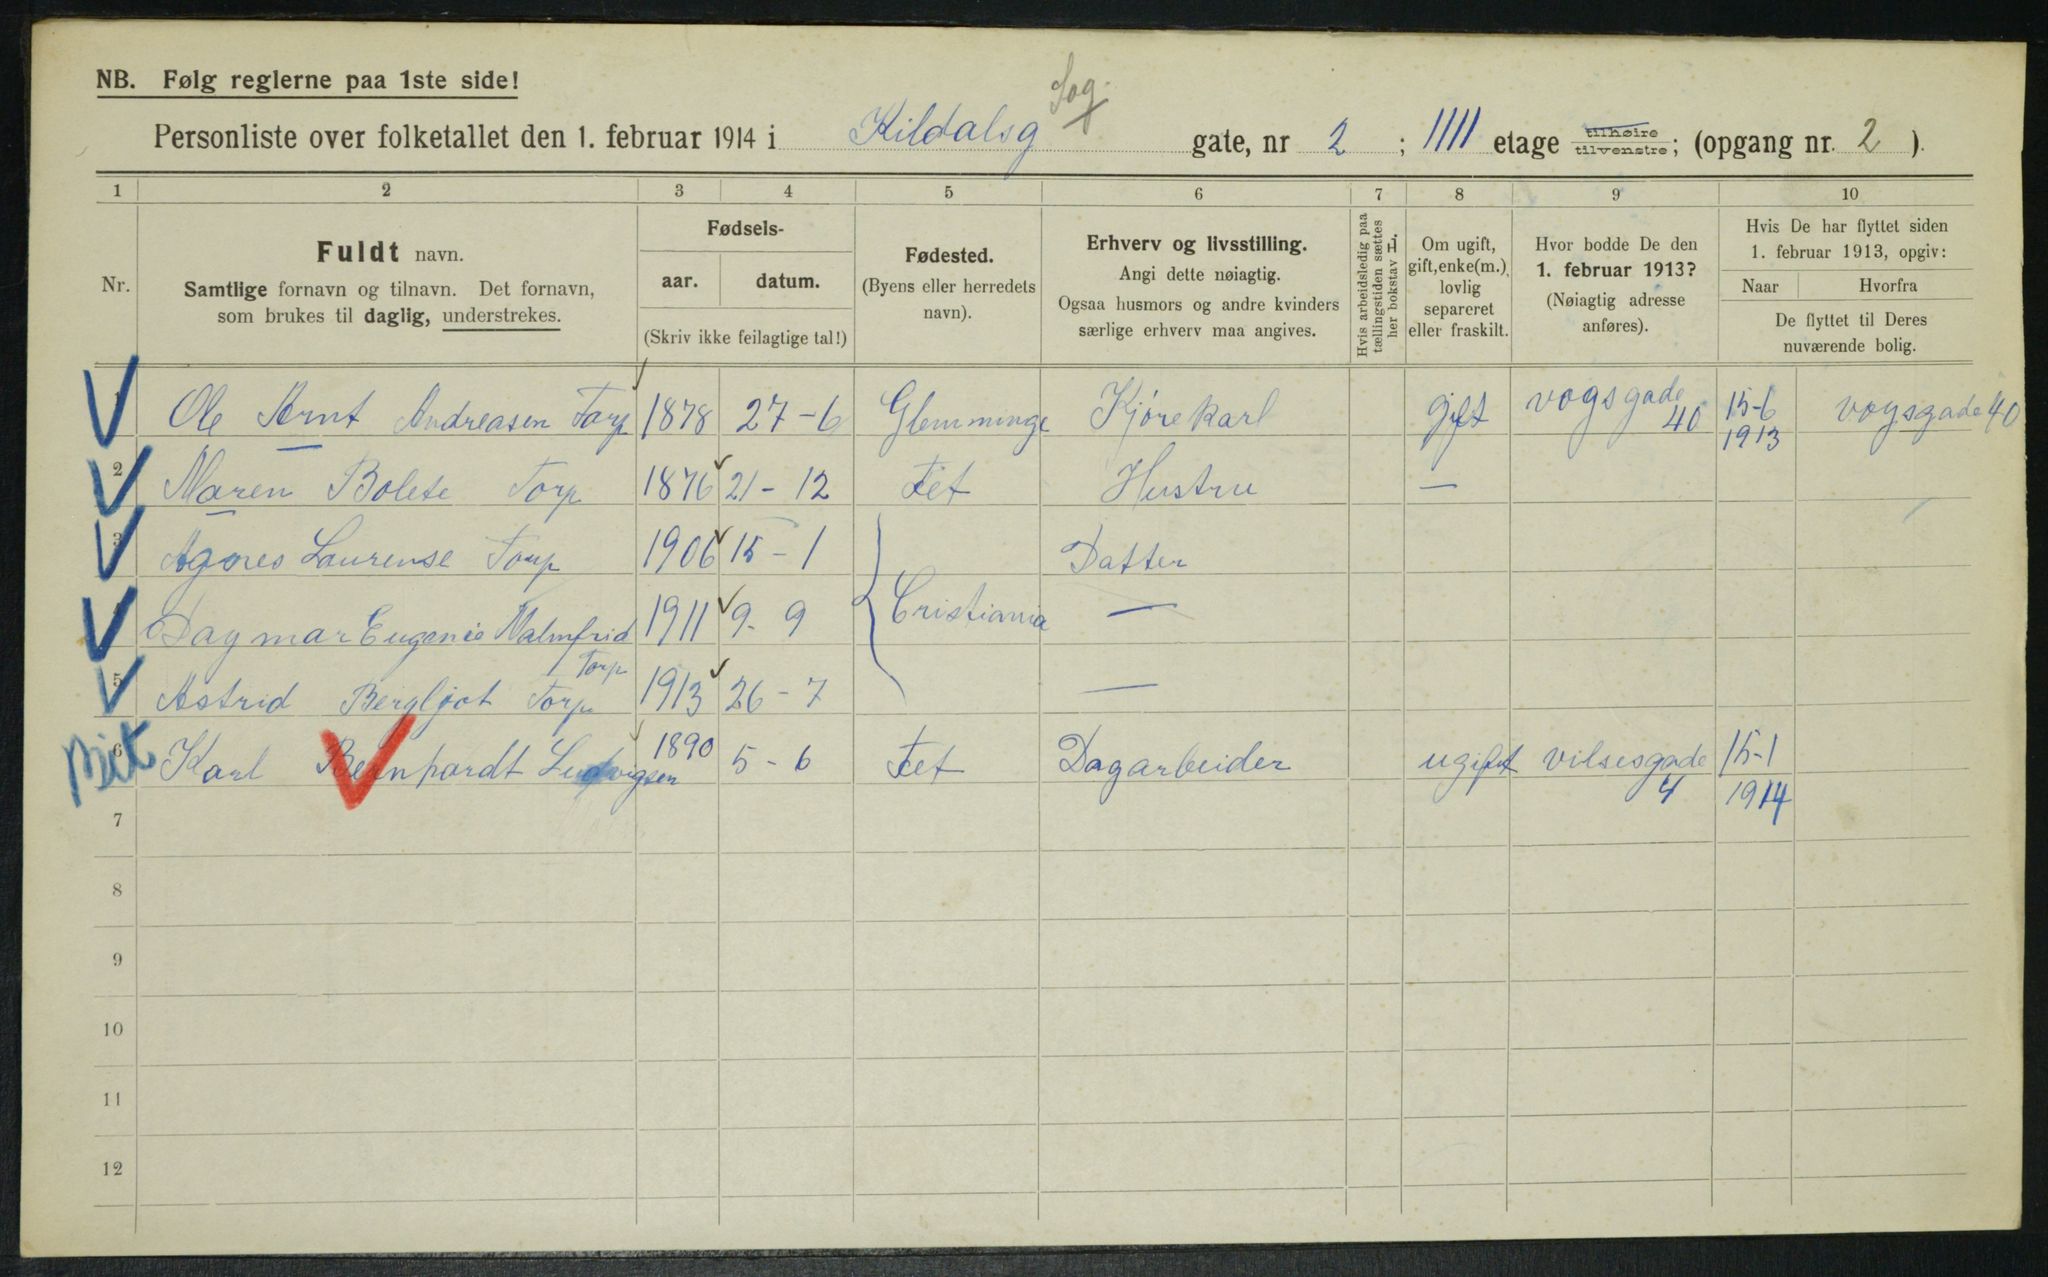 NB. Følg reglerne paa 1ste side!
Personliste over folketallet den 1. februar 1914 i Kildalsg gate, nr 2 ; 1111 etage tilhøire tilvenstre ; (opgang nr. 2 ).
1 2 3 4 5 6 7 8 9 10
Nr.
Fuldt navn.
Samtlige fornavn og tilnavn. Det fornavn,
som brukes til daglig, understrekes.
Fødsels-
aar. datum.
(Skriv ikke feilagtige tal!)
Fødested.
(Byens eller herredets
navn).
Erhverv og livsstilling.
Angi dette nøiagtig.
Ogsaa husmors og andre kvinders
særlige erhverv maa angives.
Hvis arbeidsledig paa
tællingstiden sættes
her bokstav L.
Om ugift,
gift, enke(m.),
lovlig
separeret
eller fraskilt.
Hvor bodde De den
1. februar 1913?
(Nøiagtig adresse
anføres).
Hvis De har flyttet siden
1. februar 1913, opgiv:
Naar Hvorfra
De flyttet til Deres
nuværende bolig.
1 Ole Arnt Andreasen Torp 1878 27-6 Glemminge Kjørekarl gift vogsgade 40 15-6 1913 vogsgade 40
2 Maren Bolete Torp 1876 21-12 Fet Hustru —
3 Agnes Laurense Torp 1906 15-1 Datter
4 Dagmar Eugenie Malmfrid Torp 1911 9-9 Cristiania —
5 Astrid Bergljot Torp 1913 26-7 —
6 Karl Bernhardt Ludvigsen 1890 5-6 Fet Dagarbeider ugift vilsesgade 4 15-1 1914
7
8
9
10
11
12